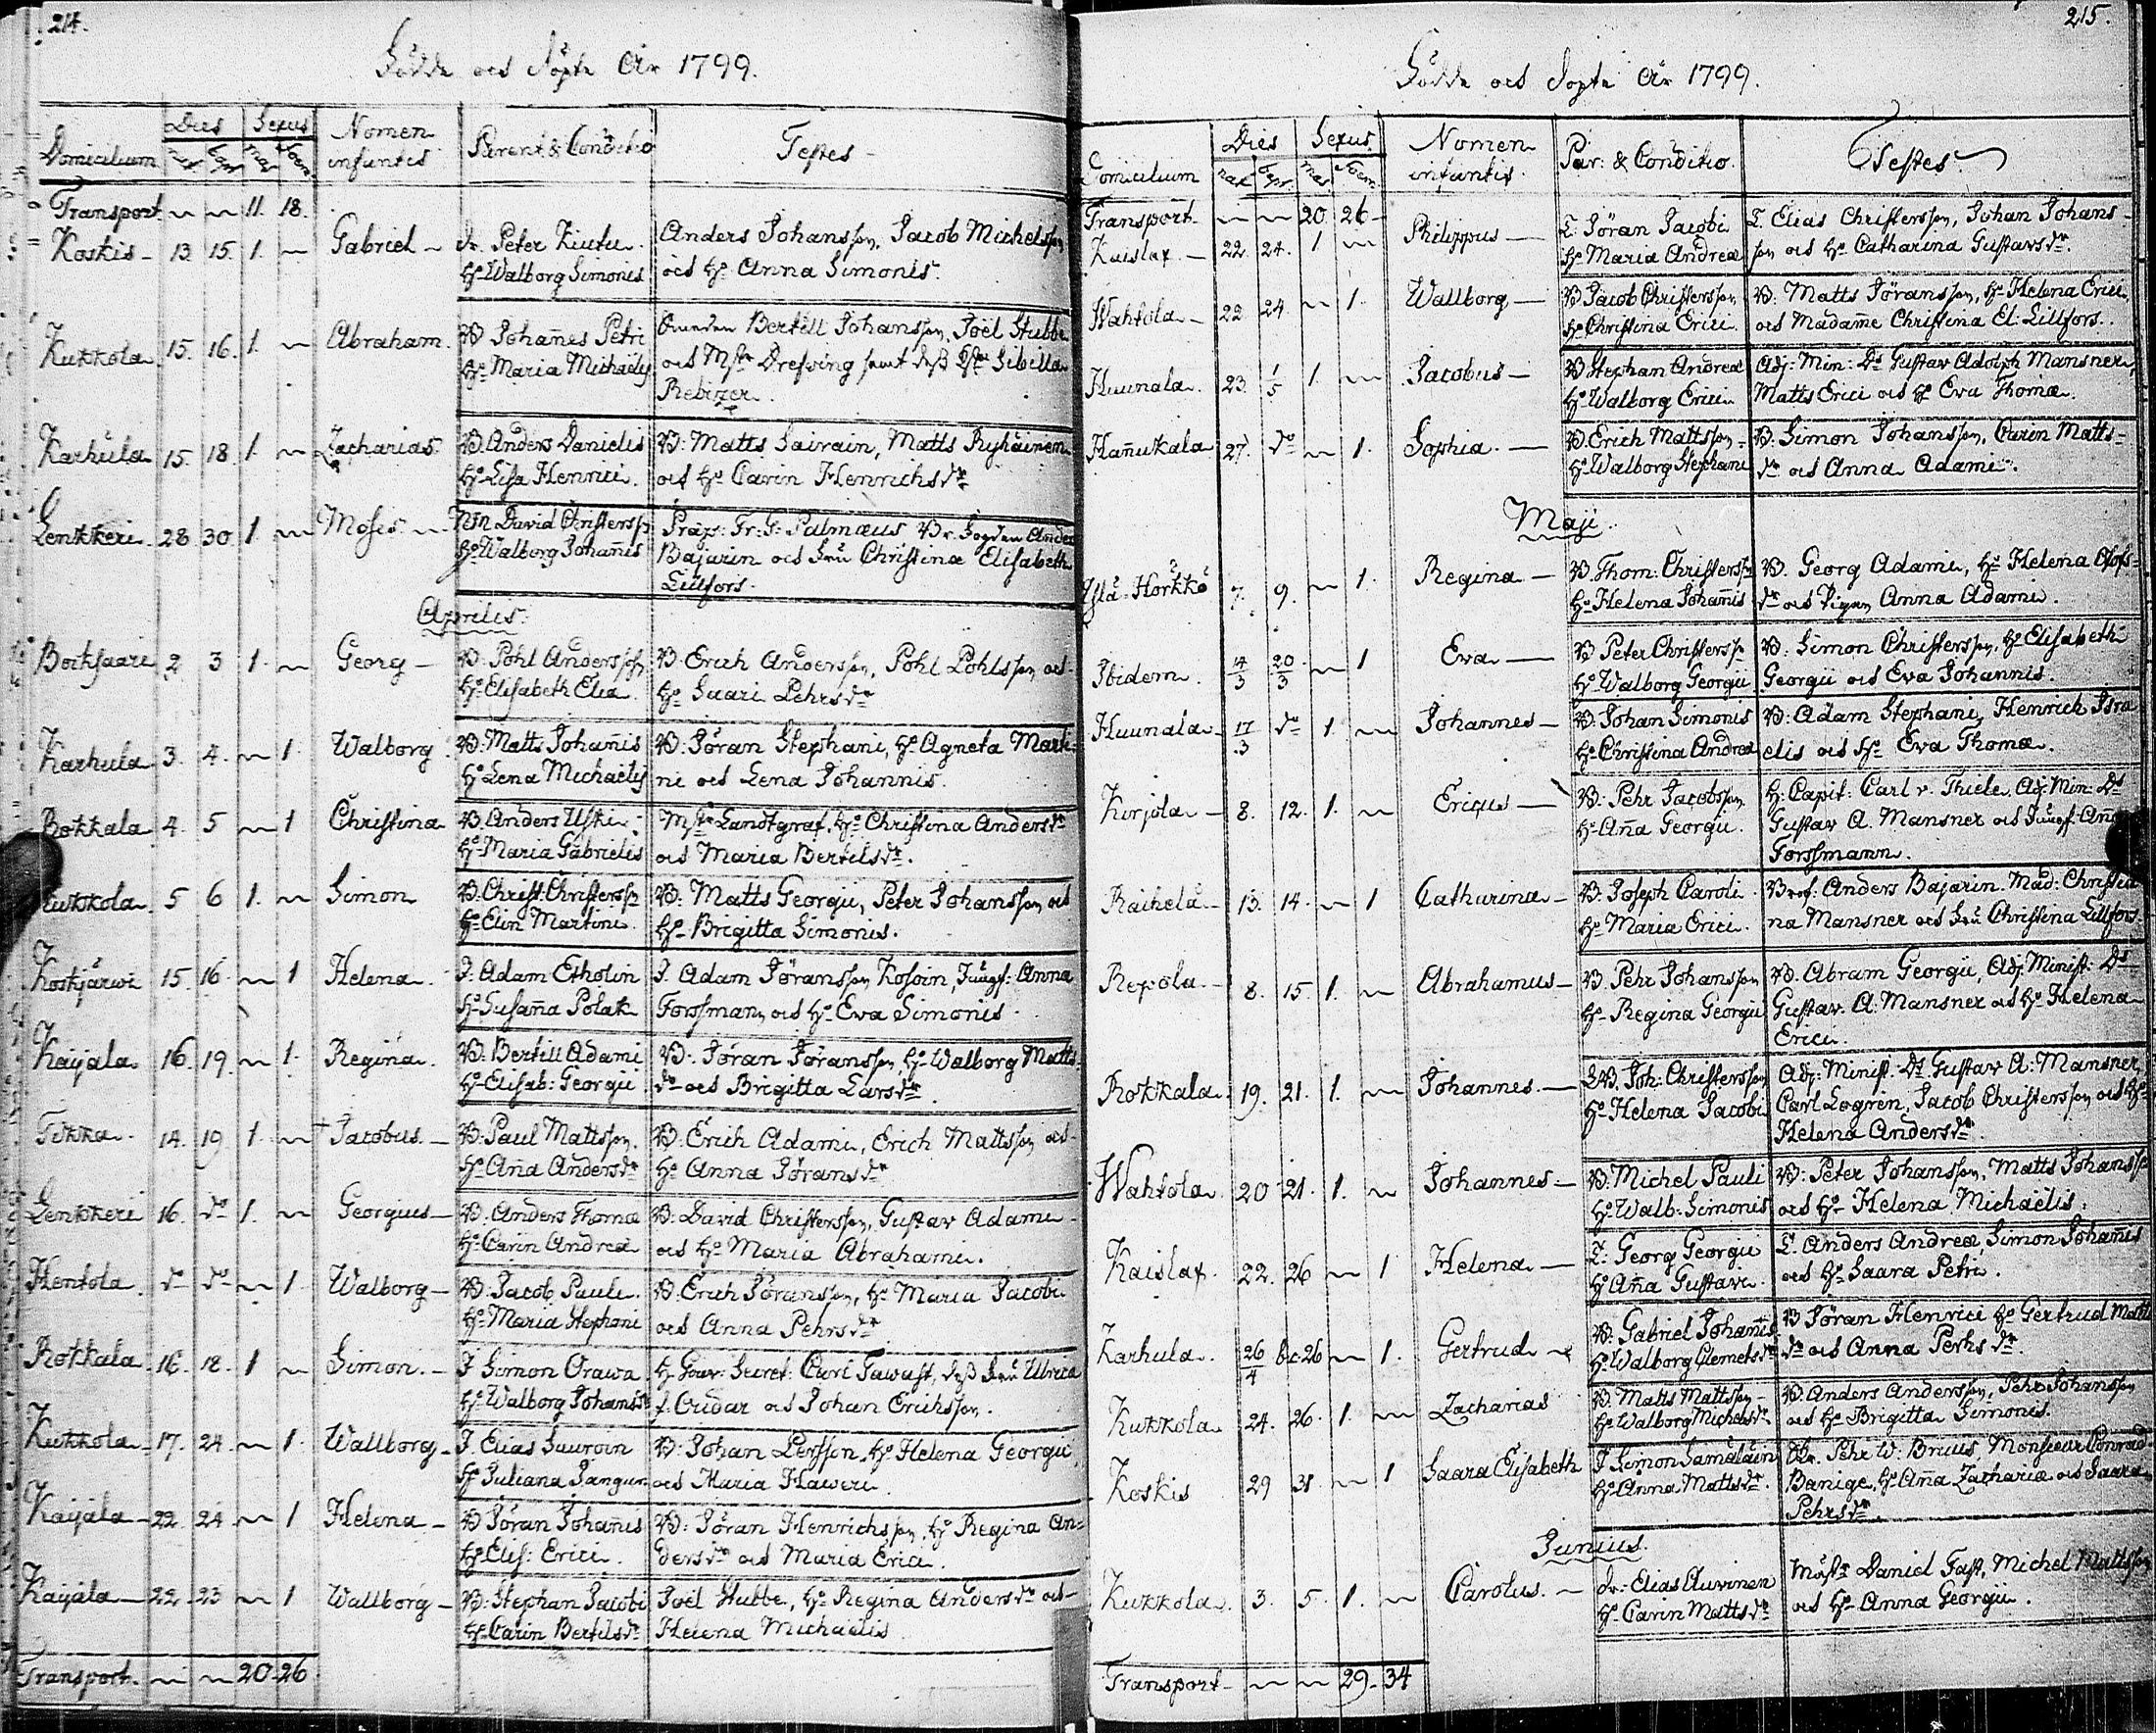 214.
Födde och Döpte År 1799.
Domicilium Dies Sexus Nomen infantis Parent: & Conditio Testes
nat. bapt. mas. Foem.
Transport 11. 18.
Koskis 13. 15. 1. Gabriel Peter
Hu Walborg Simonis
Anders Johansson, Jacob Michelsson
och Hu Anna Simonis.
Kukkola 15. 16. 1. Abraham. B. Johañes Petri
Hu Maria Michaëlis
Bertill Johansson, Joël Stubbe
och Mstr Drefving samt dess Sibilla
Rebizer.
Karhula 15. 18. 1. Zacharias B. Anders Danielis
Hu Lisa Henrici.
B: Matts Sairain, Matts Ryhäinen
och Hu Carin Henrichsdr
Lenkkeri 28. 30. 1. Moses David Christerss:
Hu Walborg Johañis
Præp: Fr: G: Palmæus, Anders
Bajarin och Fru Christina Elisabeth
Lillfors.
Aprilis.
Bocksaari 2 3 1. Georg B. Pohl Andersson
Hu Elisabeth Eliæ.
B. Erich Andersson, Pohl Pohlsson och
Hu Saari Pehrsdr
Karhula 3. 4. 1. Walborg B: Matts Johañis
Hu Lena Michaëlis
B: Jöran Stephani, Hu Agneta Marti-
ni och Lena Johannis.
Rokkala 4. 5 1 Christina B. Anders Uski
Hu Maria Gabrielis
Mstr Landtgraf, Hu Christina Andersdr
och Maria Bertilsdr.
Kukkola. 5 6 1. Simon B. Christ: Christerss:
Hu Elin Martini.
B: Matts Georgii, Peter Johansson och
Hu Brigitta Simonis.
Koskjärwi 15. 16. 1 Helena. J: Adam Etholin
Hu Susaña Polak
J. Adam Jöransson Kosoin, Jungf: Anna
Forssmann och Hu Eva Simonis.
Kaijala 16. 19. 1. Regina. B: Bertill Adami
Hu Elisab: Georgii
B: Jöran Jöransson, Hu Walborg Matts-
dr och Brigitta Larsdr.
Tikka. 14. 19. 1. † Jacobus. B. Paul Mattsson.
Hu Aña Andersdr
B: Erich Adami, Erich Mattsson och
Hu Anna Jöransdr
Lenkkeri 16. do 1. Georgius B: Anders Thomæ
Hu Carin Andreæ
B: David Christersson, Gustav Adami
och Hu Maria Abrahami.
Hentola do do 1. Walborg B: Jacob Pauli.
Hu Maria Stephani
B: Erich Jöransson, Hu Maria Jacobi
och Anna Pehrsdr
Rokkala 16. 18. 1 Simon. J Simon Orawa
Hu Walborg Johansdr
H. Secret: Carl Tawast, dess Fru Ulrica
f. och Johan Erichsson.
Kukkola 17. 24. 1. Wallborg J. Elias Sauroin
Hu Juliana
B: Johan Persson, Hu Helena Georgii,
och Maria Haweri.
Kaijala 22. 24 1 Helena B Jöran Johañis
Hu Elis: Erici.
B: Jöran Henrichsson, Hu Regina An-
dersdr och Maria Erici.
Kaijala 22. 23 1 Wallborg B: Stephan Jacobi
Hu Carin Bertilsdr
Joël Stubbe, Hu Regina Andersdr och
Helena Michaëlis
Transport. 20. 26
215.
Födde och Döpte År 1799.
Domicilium Dies Sexus. Nomen infantis. Par: & Conditio. Testes
nat. bapt. mas. Foem.
Transport 20. 26
Kaislax. 22. 24. 1 Philippus T. Jöran Jacobi
Hu Maria Andreæ
T. Elias Christersson, Johan Johans-
son och Hu Catharina Gustavsdr.
Wahtola 22 24. 1. Wallborg B Jacob Christersson
Hu Christina Erici.
B: Matts Jöransson, Hu Helena Erici
och Madame Christina El: Lillfors.
Huunala. 23. 1/5 1. Jacobus B Stephan Andreæ
Hu Walborg Erici
Adj: Min: Ds Gustav Adolph Mansner,
Matts Erici och Hu Eva Thomæ.
Hañukala 27. do 1. Sophia. B. Erich Mattsson
Hu Walborg Stephani
B: Simon Johansson, Carin Matts-
dr och Anna Adami.
Maji.
Horkkä 7. 9. 1. Regina B. Thom: Christersson
Hu Helena Johañis
B. Georg Adami, Hu Helena Olofs-
dr och Pigan Anna Adami.
Ibidem. 14/3 20/3 1 Eva B Peter Christersson
Hu Walborg Georgii
B: Simon Christersson, Hu Elisabeth
Georgii och Eva Johannis.
Huunala 17/3 do 1. Johannes B: Johan Simonis
Hu Christina Andreæ
B: Adam Stephani, Henrich Isra-
elis och Hu Eva Thomæ.
Kirjola 8. 12. 1. Ericus B: Pehr Jacobsson
Hu Aña Georgii.
H: Capit: Carl v. Thiele, Adj: Min: Ds
Gustav A. Mansner och Jungf: Aña
Forssmann.
Raihela 13. 14. 1 Catharina B: Joseph Caroli
Hu Maria Erici.
Anders Bajarin. Mad: Christi-
na Mansner och Fru Christina Lillfors
Repola 8. 15. 1. Abrahamus B: Pehr Johansson
Hu Regina Georgii
B. Abram Georgii, Adj: Minist: Ds
Gustav. A. Mansner och Hu Helena
Erici.
Rokkala. 19. 21. 1. Johannes. Joh: Christersson
Hu Helena Jacobi
Adj: Minist: Ds Gustav A: Mansner,
Carl Logrén, Jacob Christersson och Hu
Helena Andersdr.
Wahtola. 20 21. 1. Johannes B: Michel Pauli
Hu Walb: Simonis
B: Peter Johansson, Matts Johansson
och Hu Helena Michaëlis.
Kaislax. 22. 26 1 Helena T: Georg Georgii
Hu Aña Gustavi.
T. Anders Andreæ, Simon Johañis
och Hu Saara Petri.
Karhula. 26/4 26 1. Gertrud B. Gabriel Johañis
Hu Walborg Clemetsdr
B Jöran Henrici Hu Gertrud Matts
dr och Anna Perhsdr.
Kukkola 24. 26. 1. Zacharias B. Matts Mattsson
Hu Walborg Michelsdr
B. Anders Andersson, Pehr Johansson
och Hu Brigitta Simonis.
Koskis 29 31. 1 Saara Elisabeth J Simon Samulain
Hu Anna Mattsdr.
Pehr W: Bruus, Monsieur Conrad
Banige, Hu Aña Zachariæ och Saara
Pehrsdr
Junius.
Kukkola. 3. 5. 1. Carolus. Elias Auvinen
Hu Carin Mattsdr
Mustr Daniel Fast, Michel Mattsson
och Hu Anna Georgii.
Transport 29. 34